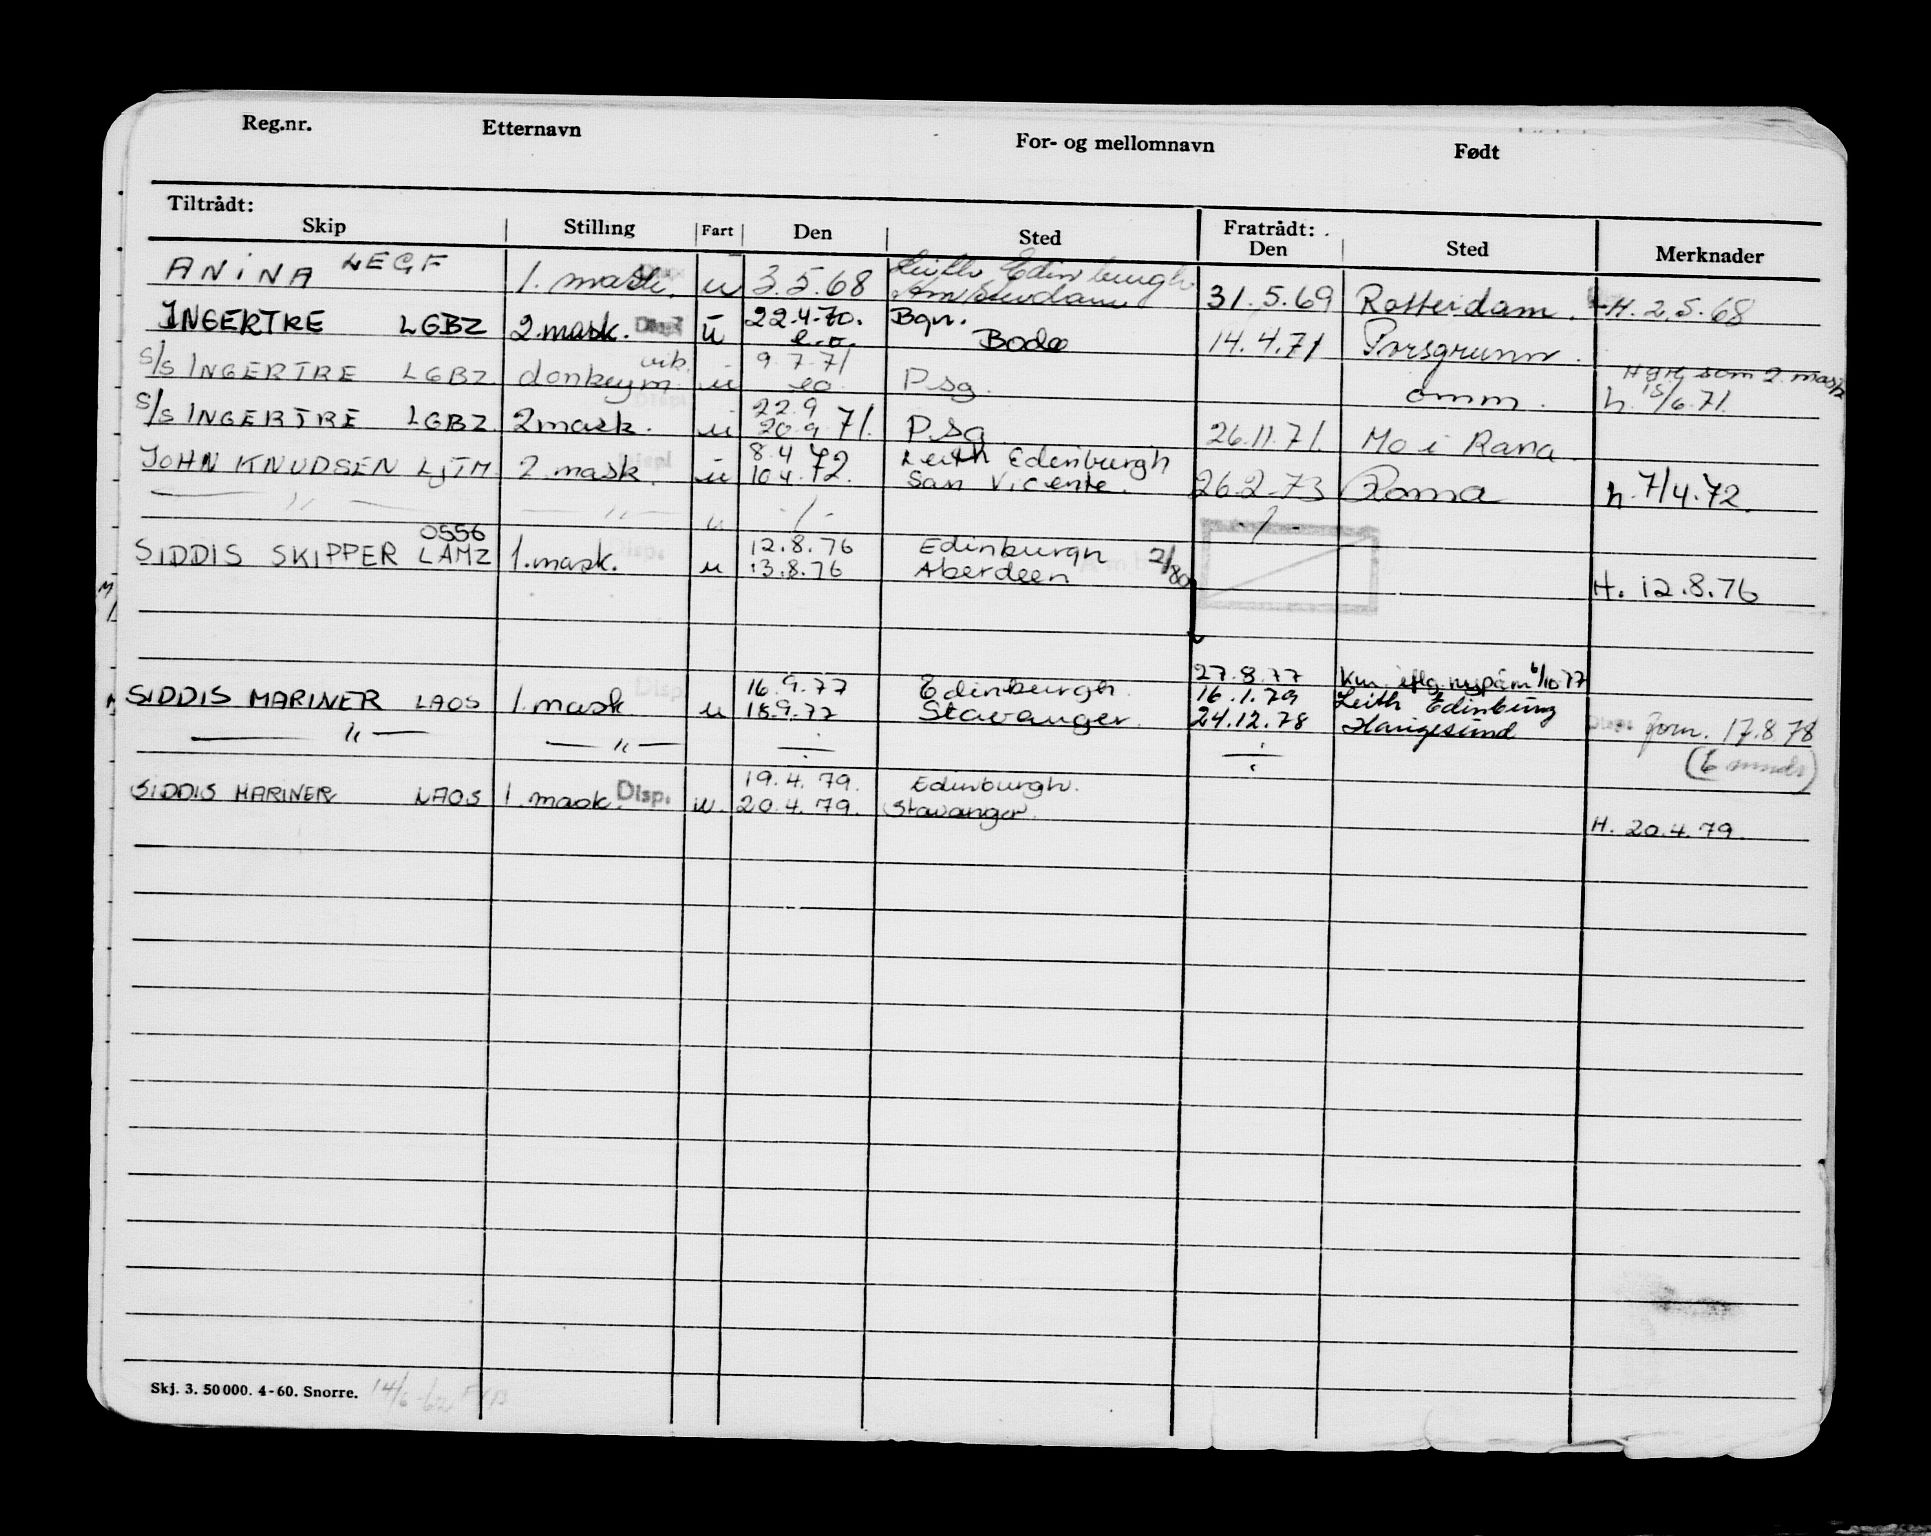 Reg.nr. Etternavn For- og mellomnavn Født
Tiltrådt: Fratrådt:
Skip Stilling Fart Den Sted Den Sted Merknader
Leith Edinburgh
ANINA LEGF 1. mask. u 3.5.68 Amsterdam 31.5.69 Rotterdam. H. 2.5.68
INGERTRE LGBZ 2.mask. Disp. u 22.4.70. Bgn. 14.4.71 Porsgrunn.
e.o. Bodø
vik. 9.7.71 som 2. mask
S/S INGERTRE LGBZ donkeym. u eo. Psg. omm. h. 15/6.71.
22.9
S/S INGERTRE LGBZ 2mask. u 20.9 71. Psg 26.11.71. Mo i Rana.
8.4 Leith Edinburgh
JOHN KNUDSEN LJTM 2. mask. u 10.4. 72. San Vicente. 26.2.73 Roma h. 7/4.72.
— " — — " — " -/- -/-
0556 12.8.76 Edinburgh 2/80
SIDDIS SKIPPER LAMZ 1.mask. Disp. u 13.8.76 Aberdeen H. 12.8.76
27.8.77 6/10-77
16.9.77 Edinburgh. 16.1.79 Leith Edinburg
SIDDIS MARINER LAOS 1. mask Disp. u 18.9.77 Stavanger. 24.12.78 Haugesund Disp. forn. 17.8.78
— " — — " — ÷ ÷ (6 mnds)
19.4.79. Edinburgh.
SIDDIS MARINER LAOS 1. mask. Disp. u. 20.4.79. Stavanger. H. 20.4.79.
Skj. 3. 50000. 4-60. Snorre. 14/6-62